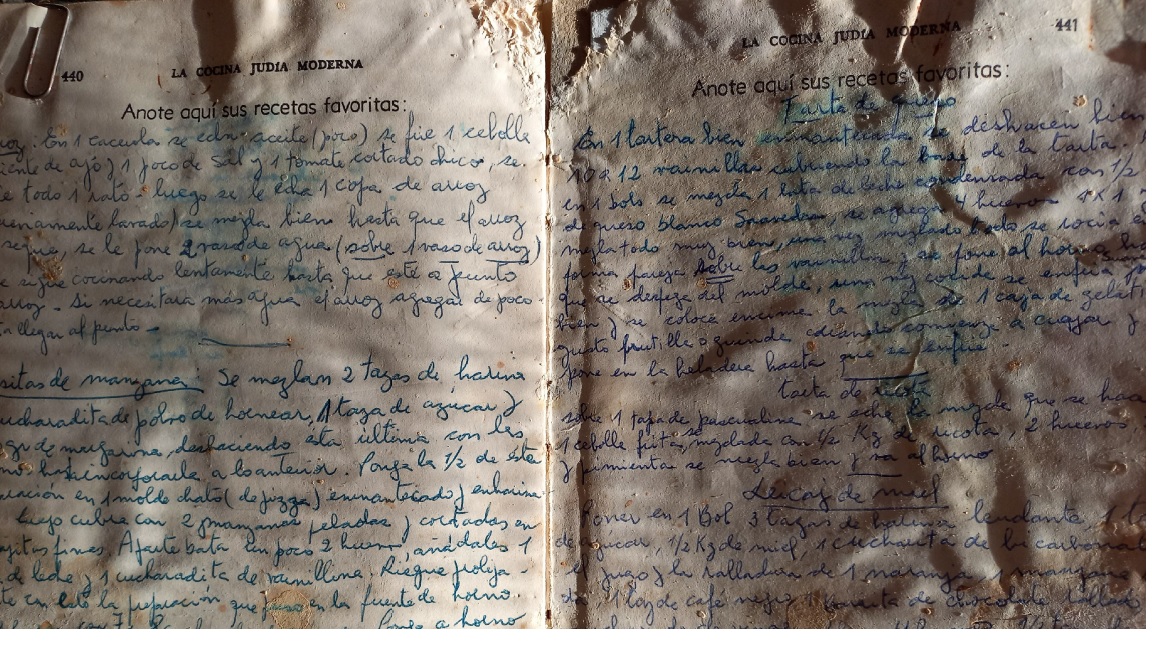 440
LA COCINA JUDÍA MODERNA
Anote aquí sus recetas favoritas:
En 1 cacerola se con aceite (poco) se frie 1 cebolla
diente de ajo y 1 poco de sal y 1 tomate cortado chico, se
todo 1 rato - luego se le echa 1 copa de arroz
lavado) se mezla bien hasta que el arroz
se le pone 2 vasos de agua (sobre 1 vaso de arroz)
sigue cocinando lentamente hasta que esté a punto
arroz - Si necesitara más agua el arroz agregar de poco
llegar al punto -
sitas de manzana: Se mezlan 2 tazas de harina
cucharadita de polvo de hornear, 1 taza de azúcar y
de margarina, deshaciendo ésta última con los
a lo anterior. Ponga la 1/2 de esta
en 1 molde chato (de pizza) enmantecado y enharina
Luego cubra con 2 manzanas peladas y cortadas en
finas. Aparte bata un poco 2 huevos, añádales 1
de leche y 1 cucharadita de vainillina. Riegue prolija-
te con esto la preparación que puso en la fuente de horno.
Ponga a horno
441
LA COCINA JUDÍA MODERNA
Anote aquí sus recetas favoritas:
Tarta de queso
En 1 tartera bien enmantecada se deshacen bien
10 a 12 vainillas cubriendo la base de la tarta.
en 1 bols se mezla 1 lata de leche condensada con 1/2
de queso blanco se agregan 4 huevos
mezla todo muy bien, una vez mezlado todo se rocía
forma pareja sobre las vainillas y se pone al horno
que se despega del molde, una vez cocido se enfría
bien y se coloca encima la mezla de 1 caja de
gusto frutilla o guinda cuando comienza a cuajar y
pone en la heladera hasta que se enfríe -
tarta de
sobre 1 tapa de pascualina se echa la mezla que se hace
1 cebolla frita, mezlada con 1/2 Kg de ricota, 2 huevos
y pimienta se mezla bien y va al horno
Leicaj de miel
Poner en 1 Bol 3 tazas de harina leudante
de azúcar, 1/2 Kg de miel, 1 cucharita de bicarbonato
el jugo y la ralladura de 1 naranja 1 manzana
1 taza de café negro 1 barrita de chocolate rallado